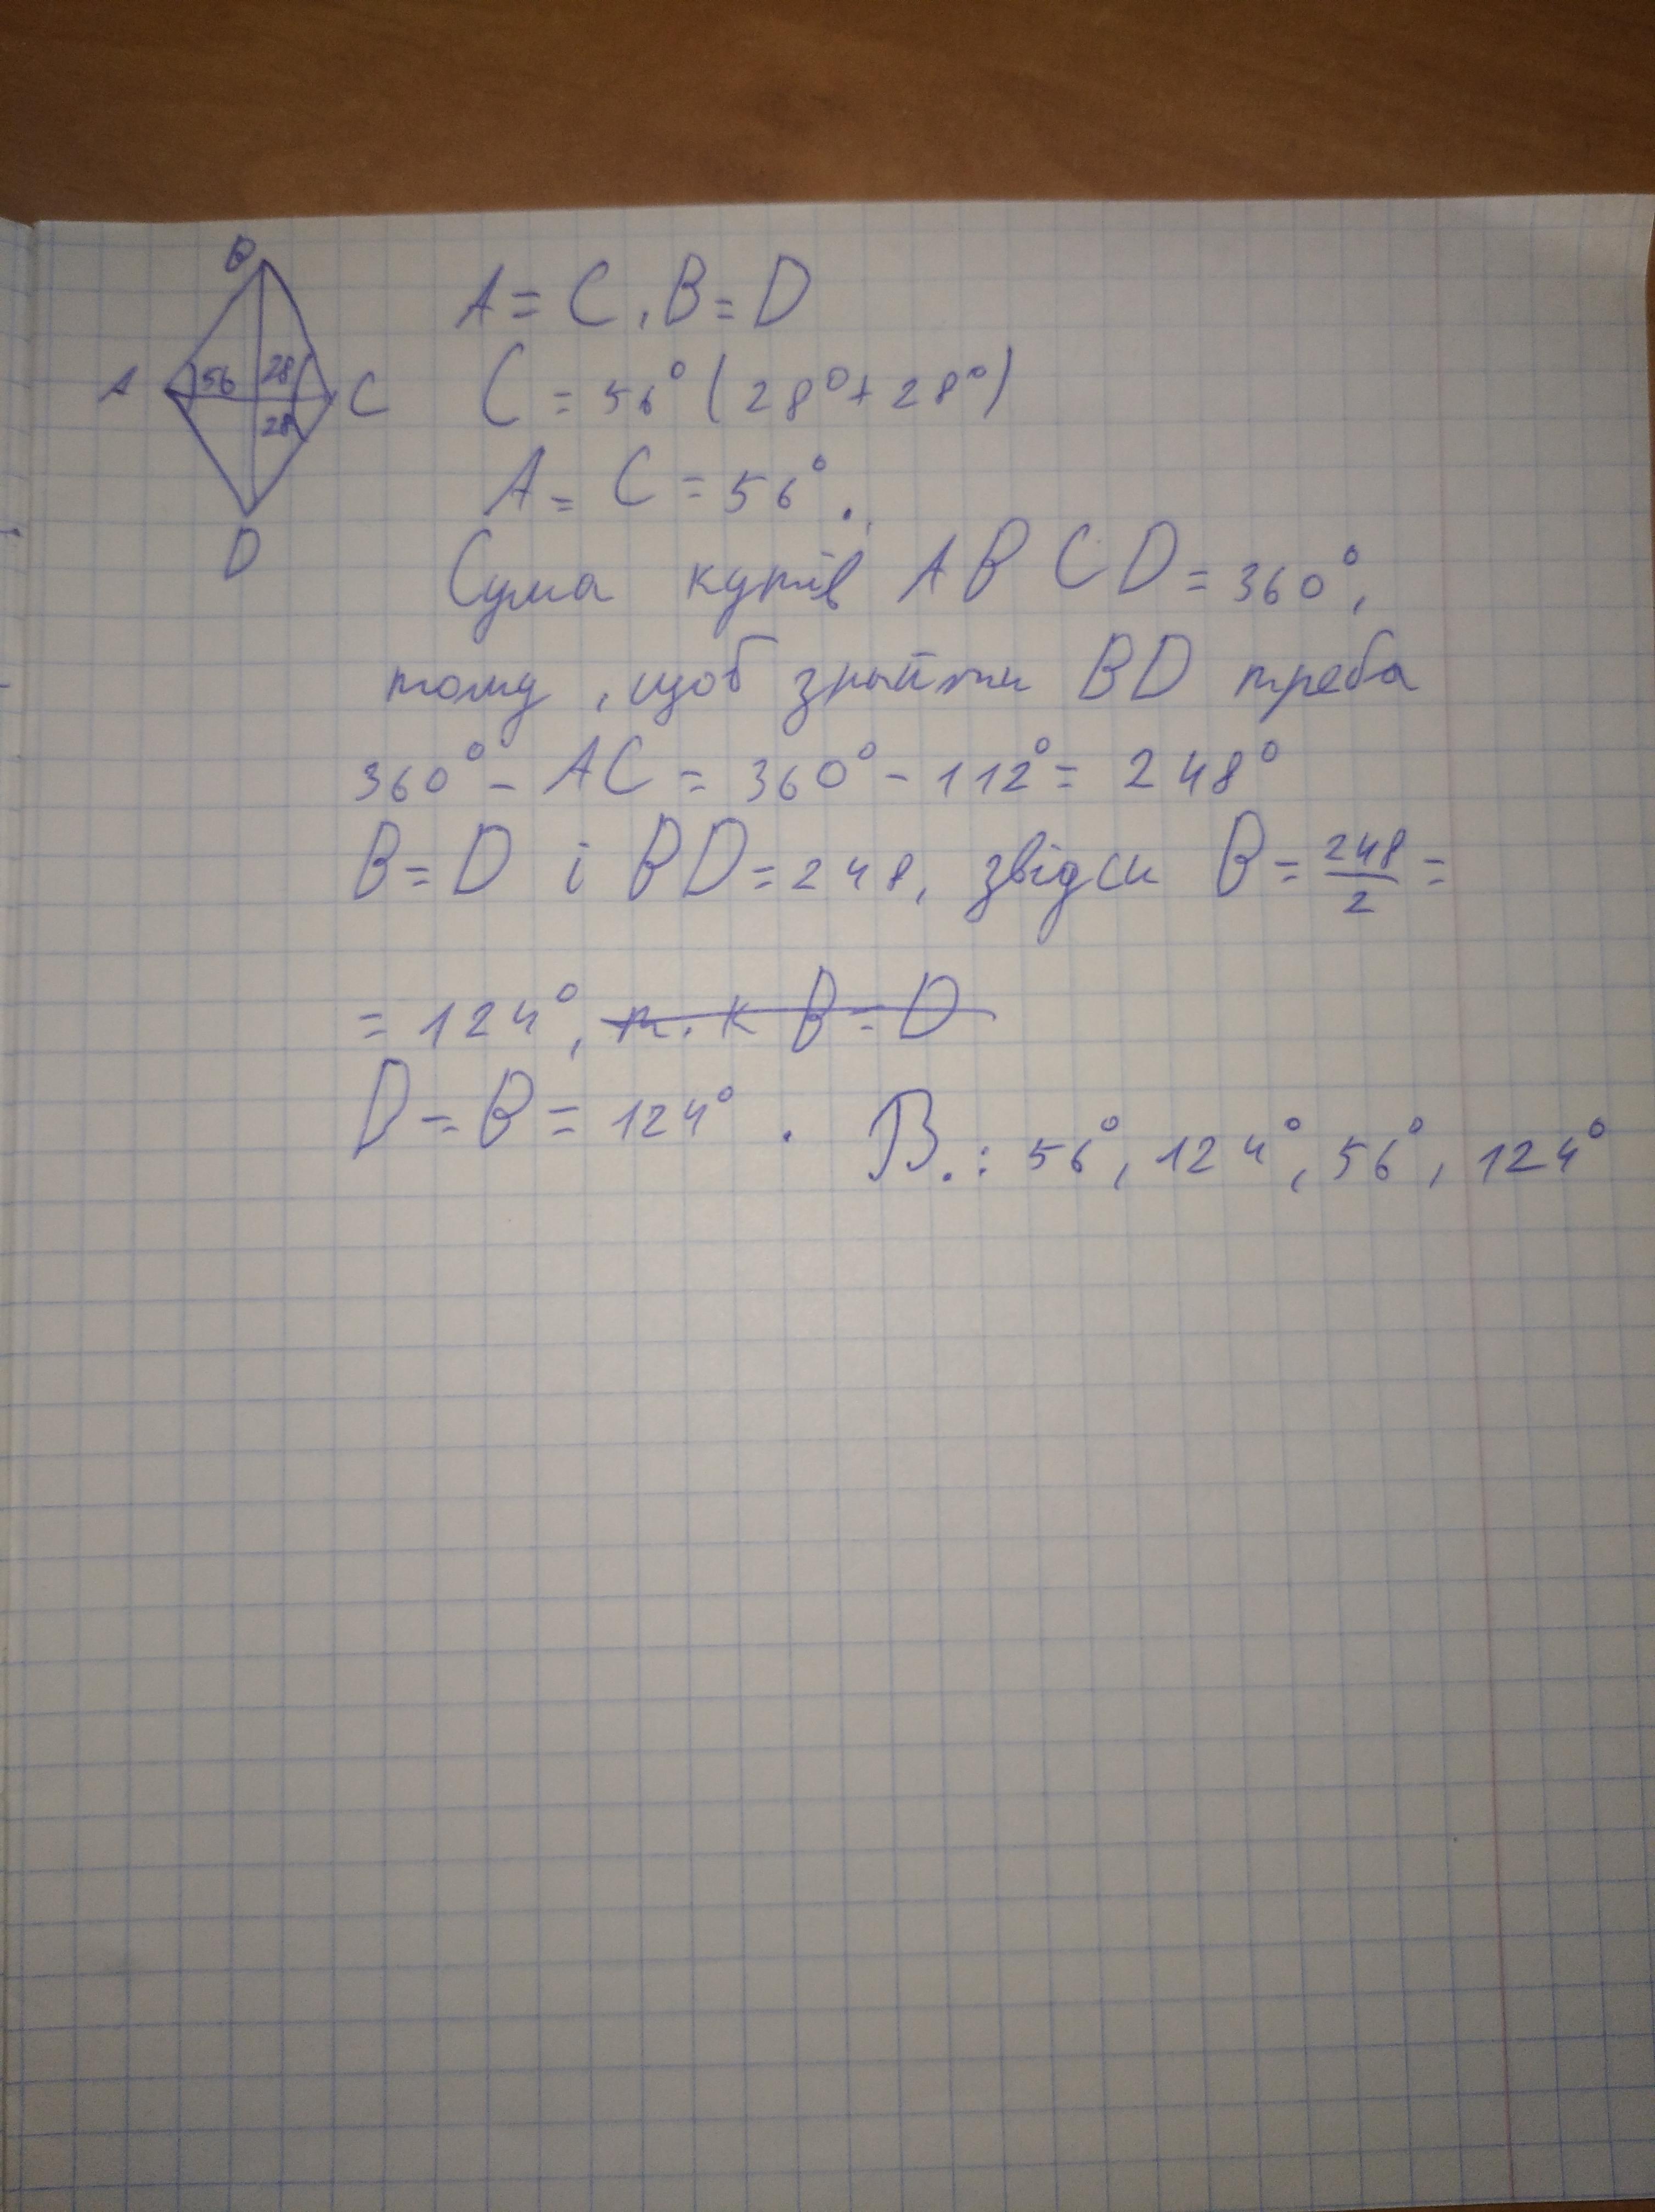 B
A 56 28 C
28
D
A = C, B = D
C = 56° (28° + 28°)
A = C = 56°.
Сума кутів ABCD = 360°,
тому, щоб знайти BD треба
360° - AC = 360° - 112° = 248°
B = D і BD = 248, звідси B = 248/2 =
= 124°, т.к B = D
D = B = 124°. В.: 56°, 124°, 56°, 124°